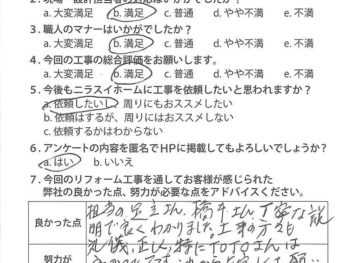 2. 現場・設計担当者の対応はいかがでしたか？
a. 大変満足 b. 満足 c. 普通 d. やや不満 e. 不満
3. 職人のマナーはいかがでしたか？
a. 大変満足 b. 満足 c. 普通 d. やや不満 e. 不満
4. 今回の工事の総合評価をお願いします。
a. 大変満足 b. 満足 c. 普通 d. やや不満 e. 不満
5. 今後もニラスイホームに工事を依頼したいと思われますか？
a. 依頼したいし、周りにもおススメしたい
b. 依頼はするが、周りにはおススメしない
c. 依頼するかはわからない
6. アンケートの内容を匿名でHPに掲載してもよろしいでしょうか？
a. はい b. いいえ
7. 今回のリフォーム工事を通してお客様が感じられた
弊社の良かった点、努力が必要な点をアドバイスください。
良かった点
担当の足立さん、橋本さん、丁寧な説
明で良くわかりました。工事の方々も
礼儀正しく、特にTOTOさんは
努力が